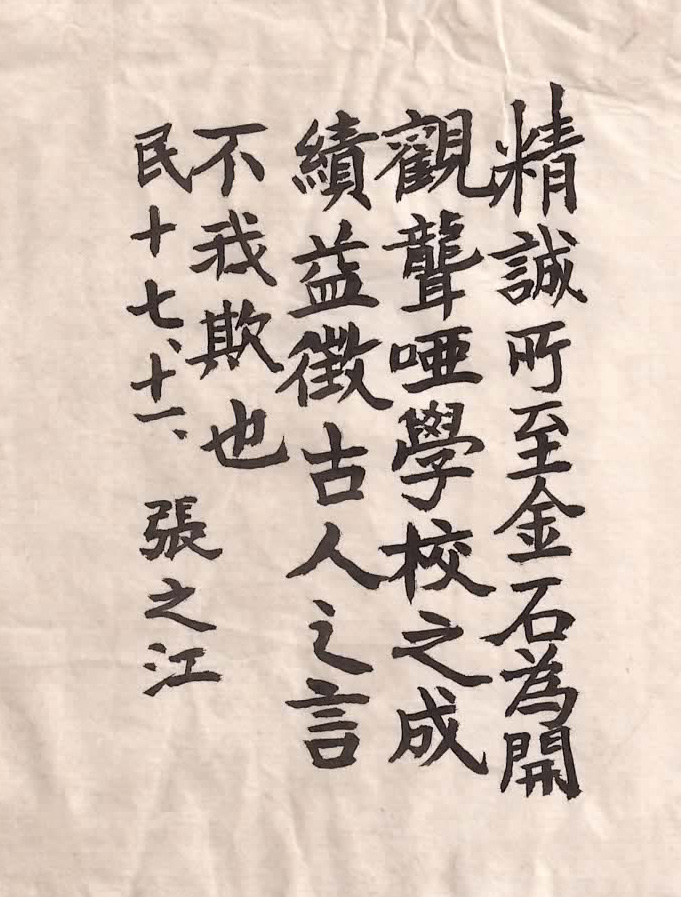 精誠所至金石為開
觀聾啞學校之成
績益徵古人之言
不我欺也
民十七、十一、 張之江